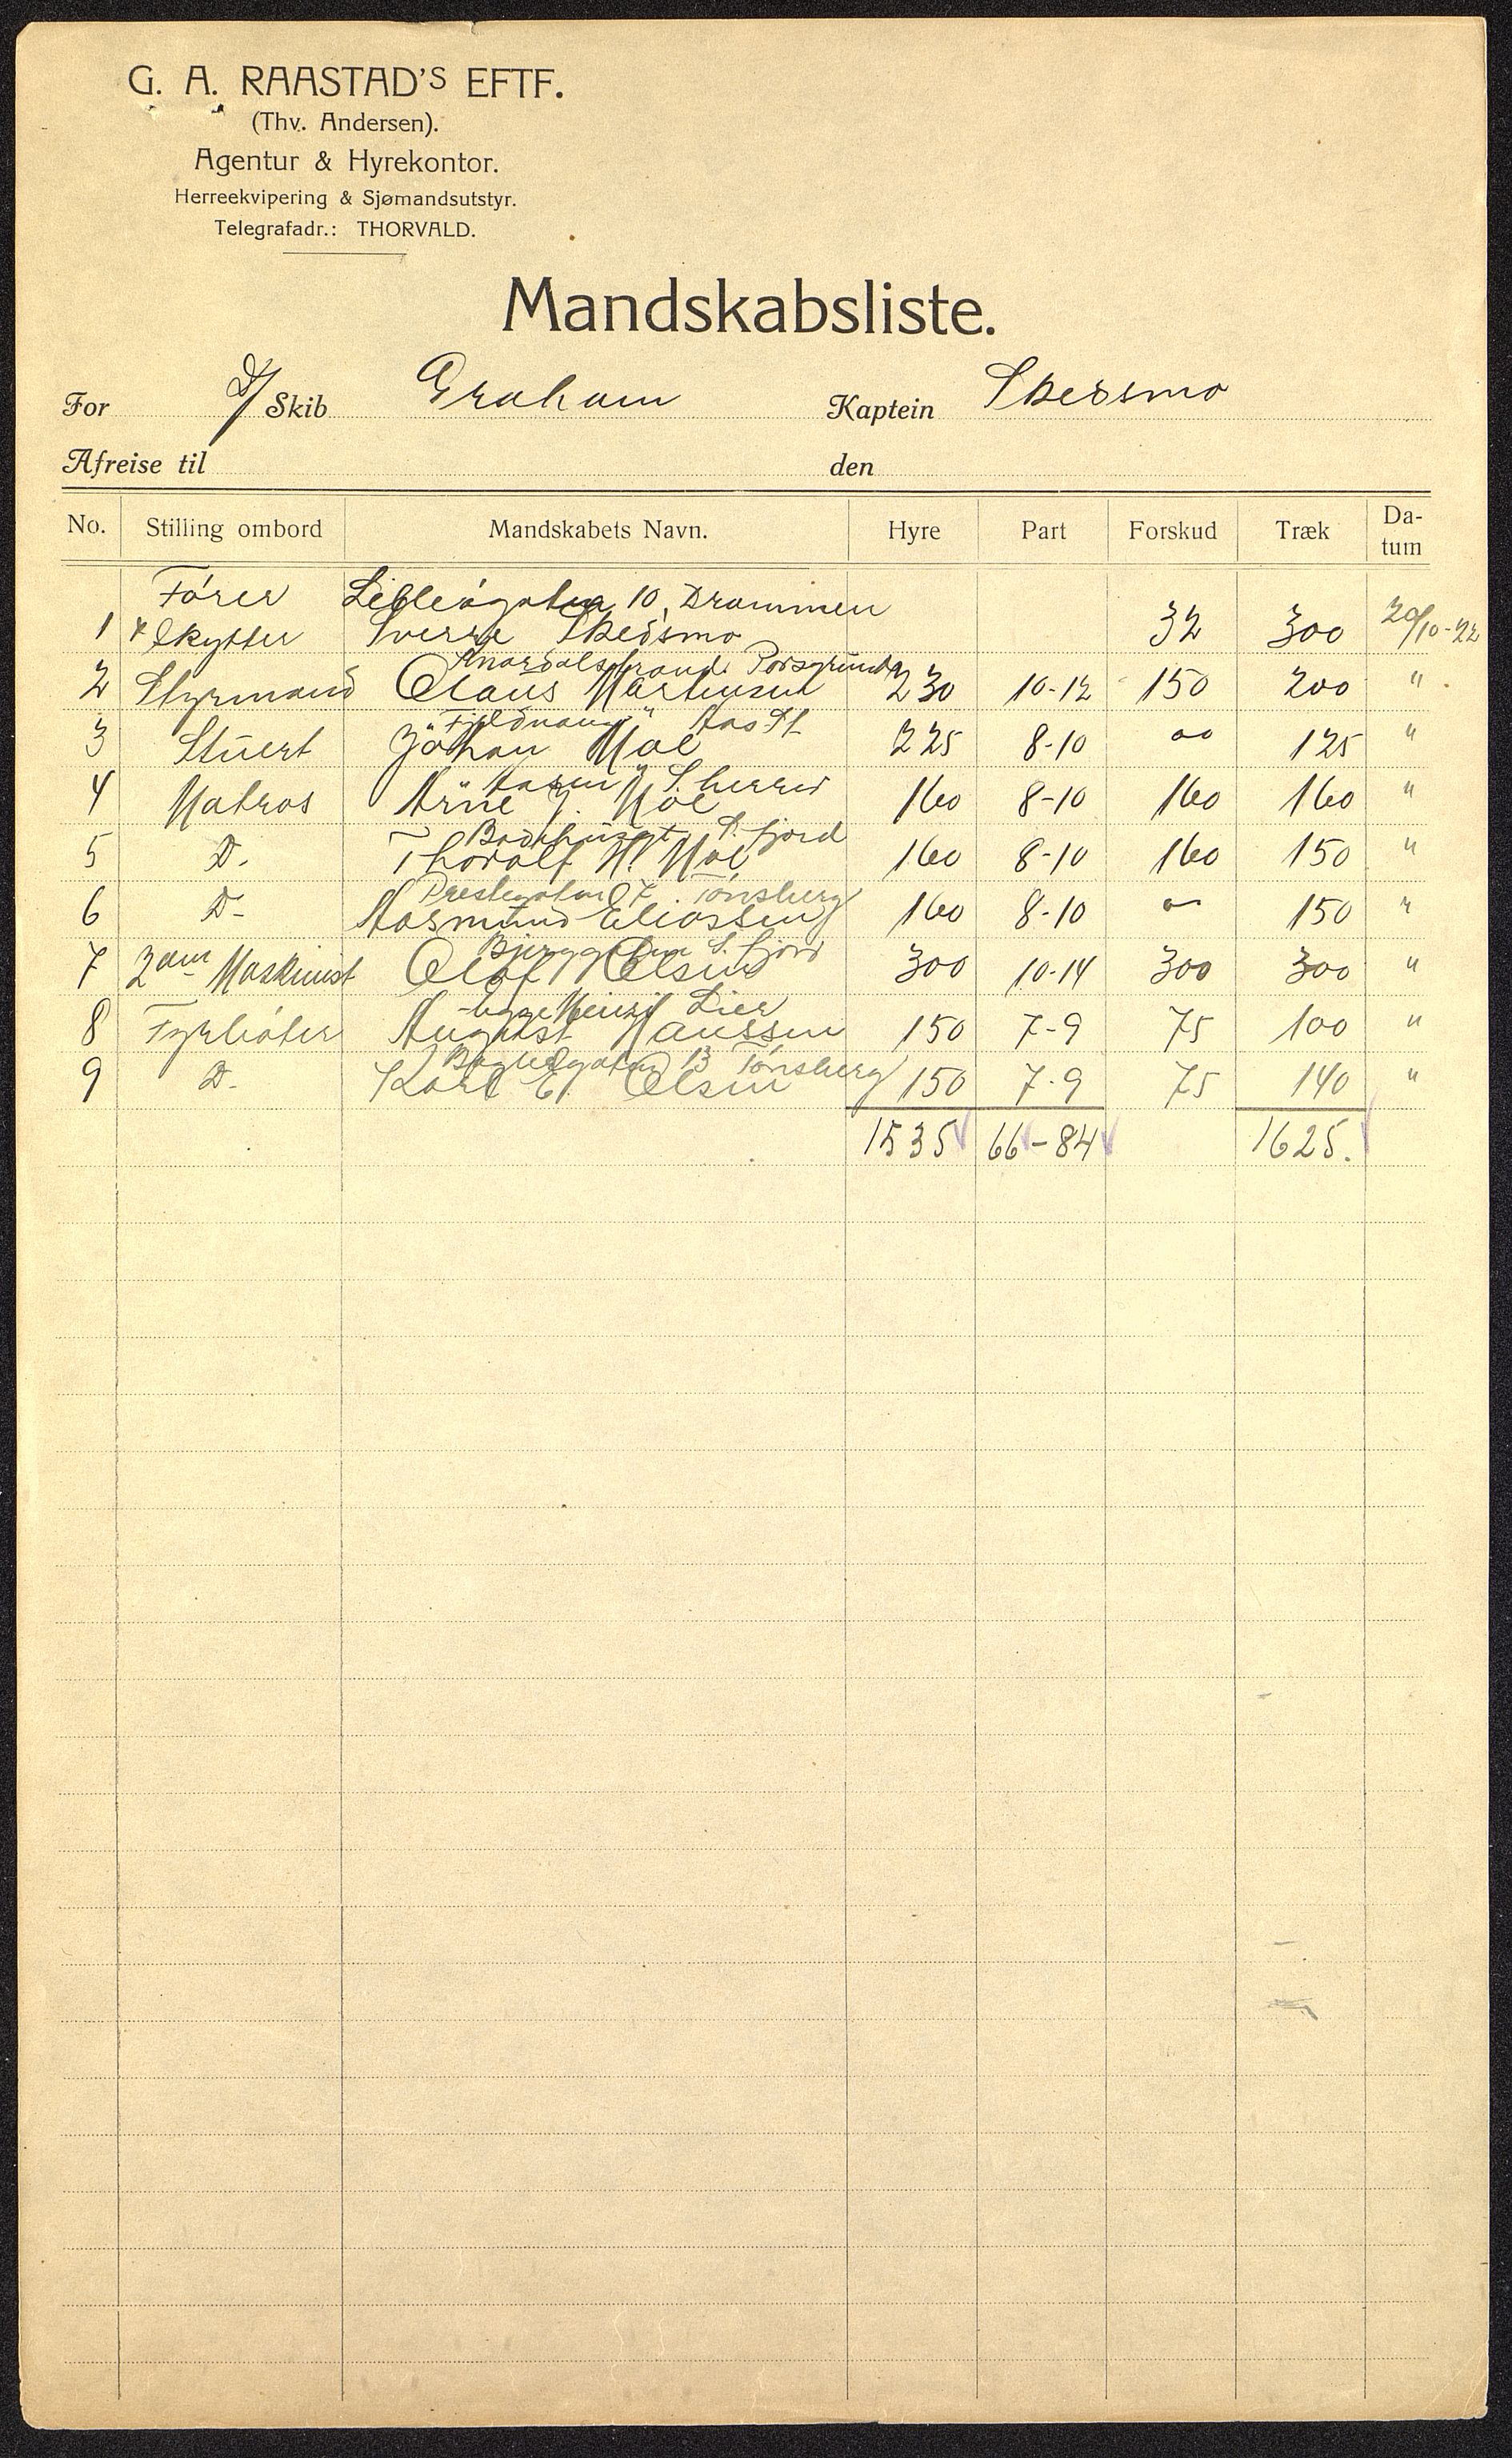 G. A. RAASTAD'S EFTF.
(Thv. Andersen).
Agentur & Hyrekontor.
Herreekvipering & Sjømandsutstyr.
Telegrafadr.: THORVALD.
Mandskabsliste.
For D/ Skib Graham Kaptein Skedsmo
Afreise til den
No. Stilling ombord Mandskabets Navn. Hyre Part Forskud Træk Da-tum
Fører Lilleågaten 10, Drammen
1 & Skytter Sverre Skedsmo 32 300 20/10-22
Knardalstrand Porsgrund
2 Styrmand Claus Martinsen 230 10-12 150 200 "
Aas St
3 Stuert Johan Moe 225 8-10 125 "
4 Matros Arne J. Moe 160 8-10 160 160 "
S. fjord
5 D. Thoralf H. Moe 160 8-10 160 150 "
Prestegaten 7. Tønsberg
6 D- Aasmund Eliassen 160 8-10 150 "
Bjerggaten S. fjord
7 2den Maskinist Olaf Olsen 300 10-14 300 300 "
Lier
8 Fyrbøter August Hanssen 150 7-9 75 100 "
13 Tønsberg
9 D. Karl E. Olsen 150 7-9 75 140 "
1535 66-84 1625.